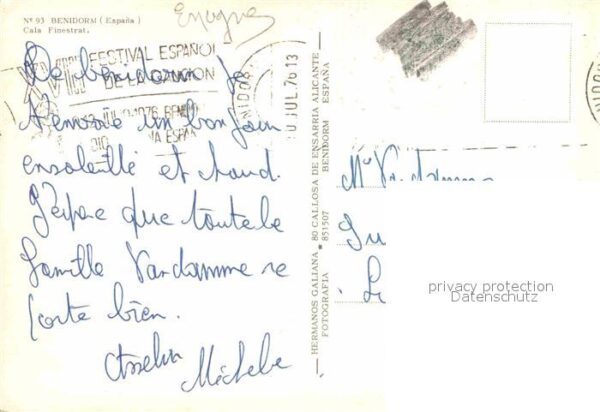 Nº 93 BENIDORM (España)
Cala Finestrat.
XVIII FESTIVAL ESPAÑOL
DE LA CANCION
De benidorm je
t'envoie un bonjour
ensoleillé et chaud.
J'espère que toute la
famille Vandamme se
porte bien.
Michèle
JUL. 76 13
HERMANOS GALIANA. 80 CALLOSA DE ENSARRIA ALICANTE
FOTOGRAFIA 851507 BENIDORM ESPAÑA
privacy protection
Datenschutz